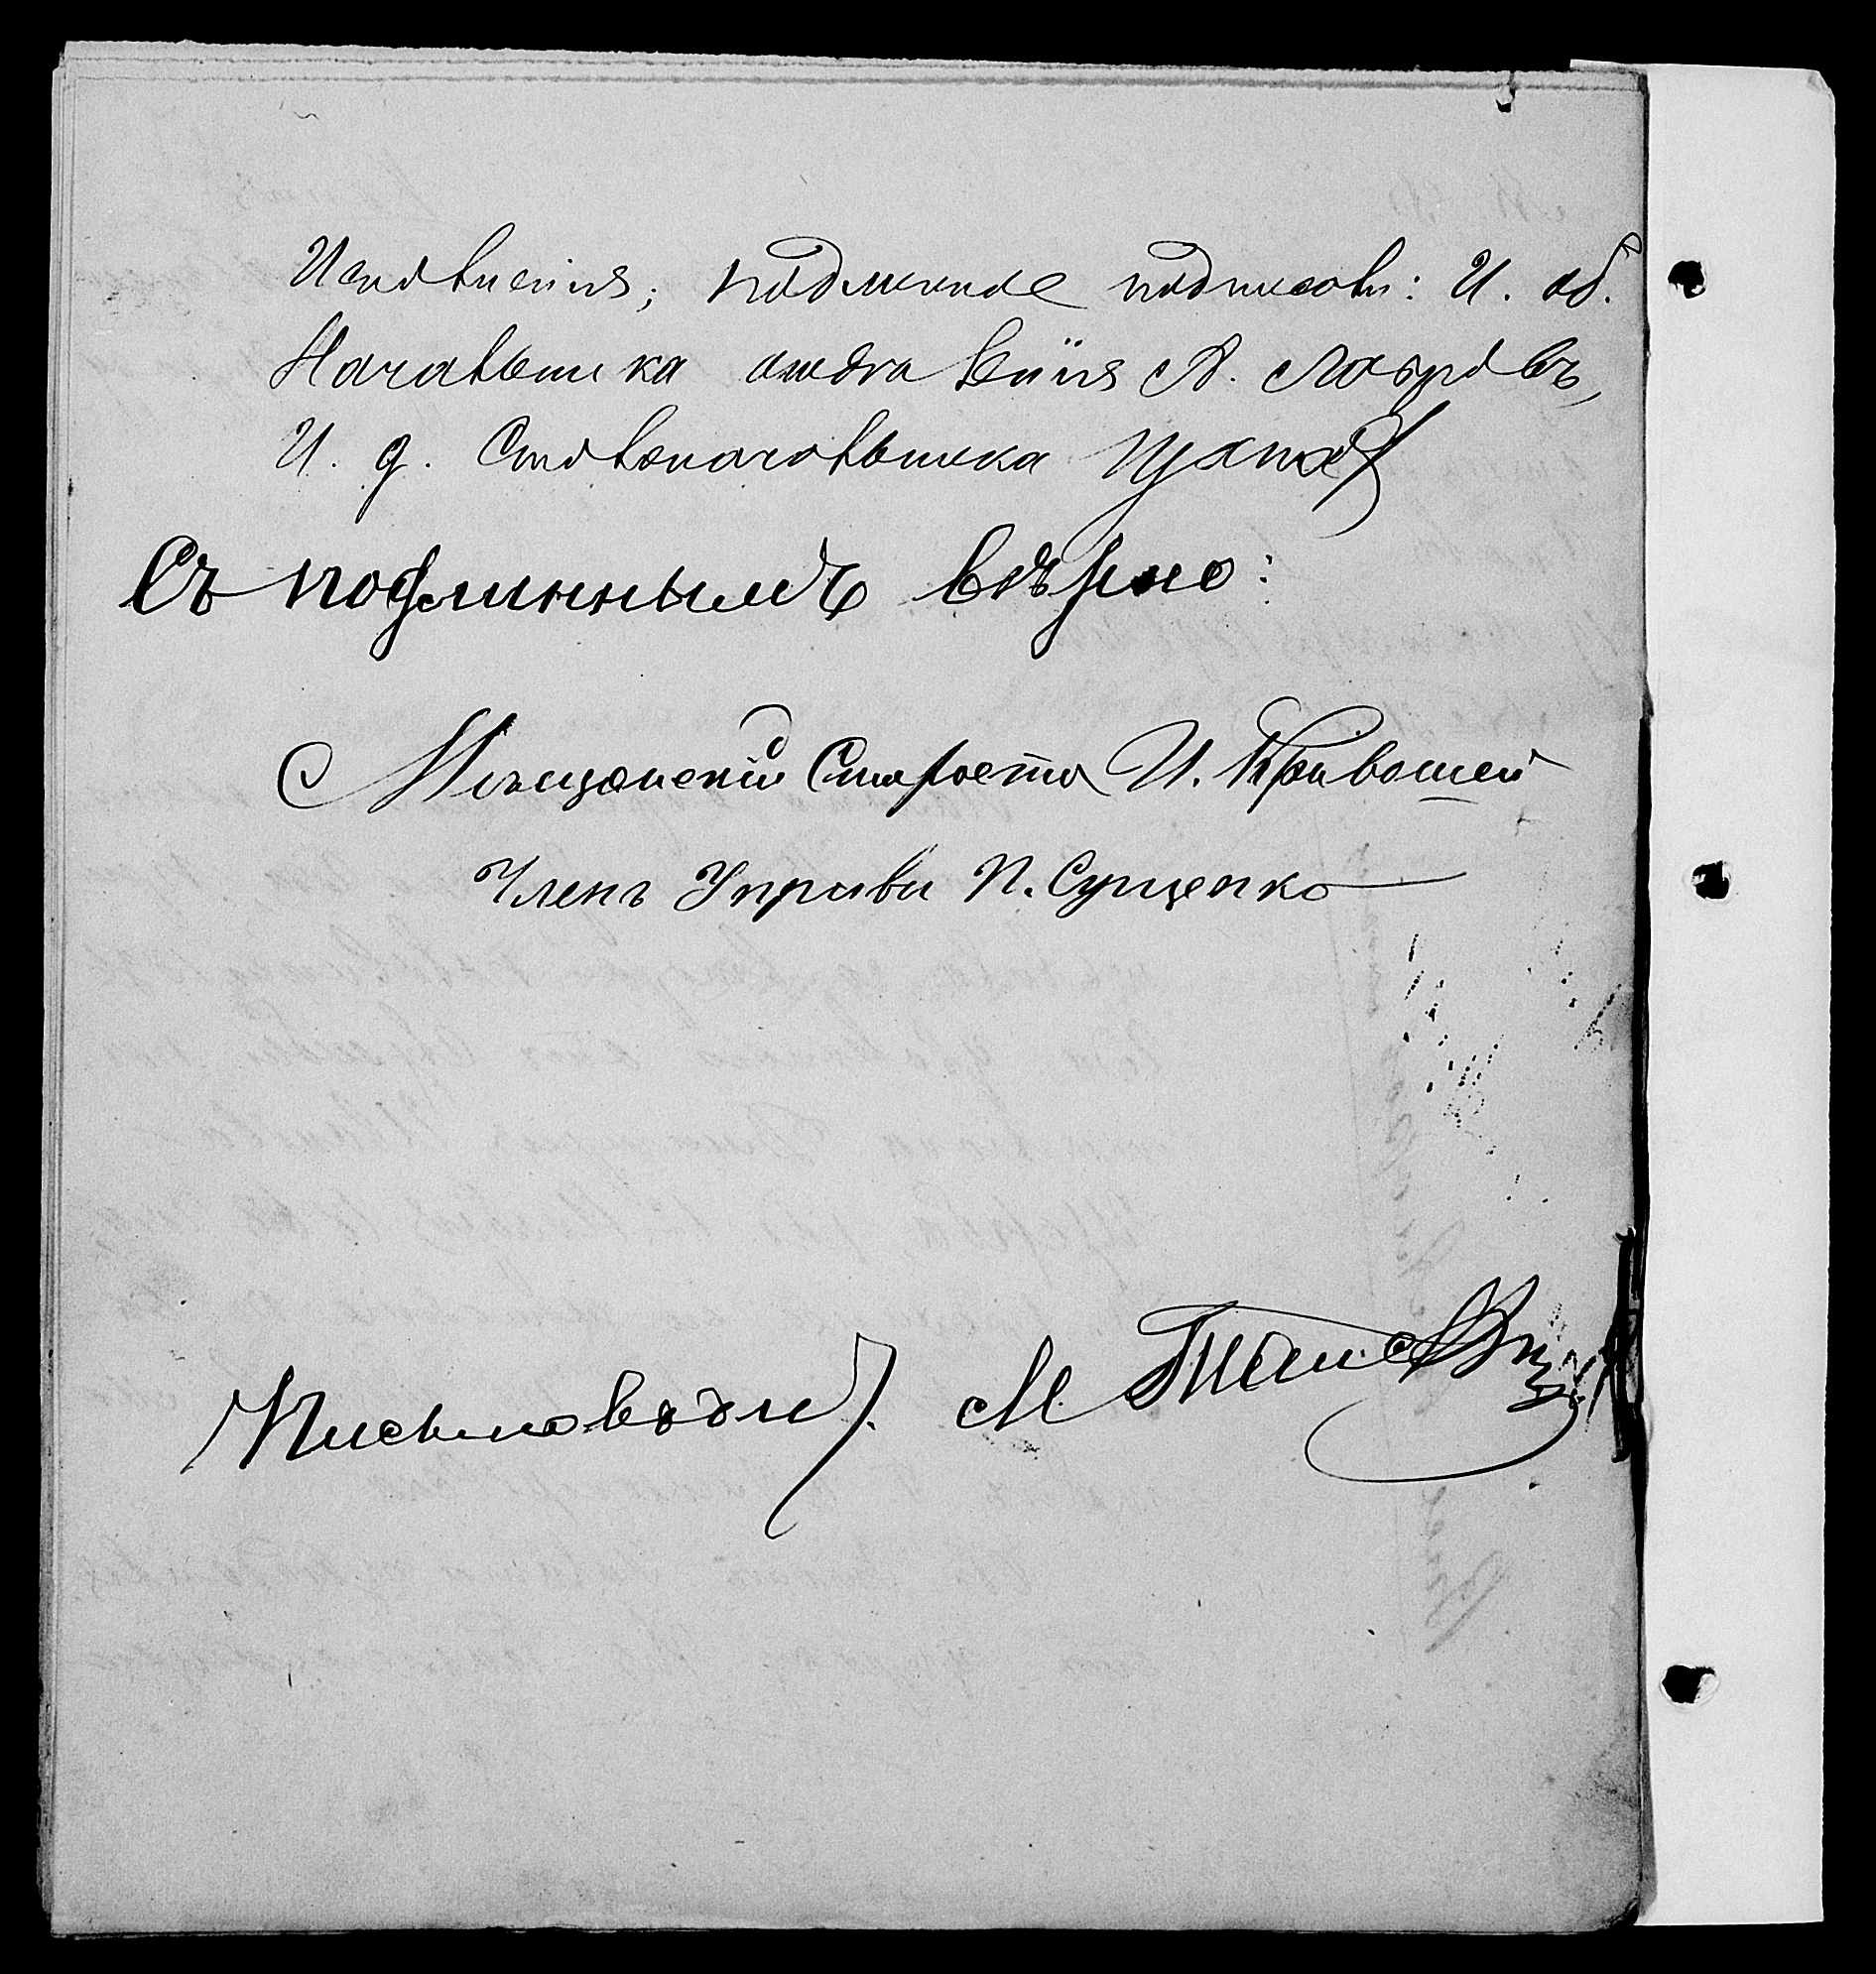 Исполненія; подлинное подписали: И. об.
Начальника отделенія А. Лавровъ,
И. д. Столоначальника
Съ подлиннымъ вѣрно:
Мѣщанскій Староста И. Кривошей
Членъ Управы П. Сущенко
Письмоводит. М.